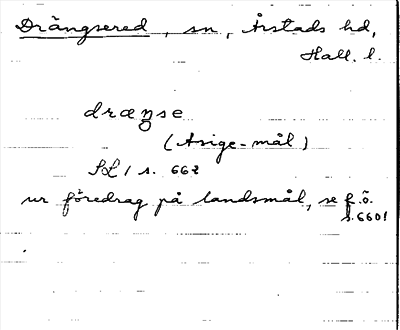 Drängsered, sn, Årstads hd,
Hall. l.
dræŋse
(Asige-mål)
SL 1 s. 662
ur föredrag på landsmål, se f.ö.
s. 660f